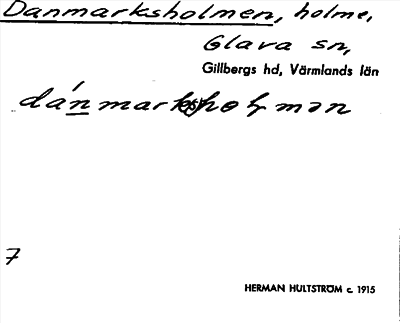 Danmarksholmen, holme,
Glava sn,
Gillbergs hd, Värmlands län
7
HERMAN HULTSTRÖM c. 1915